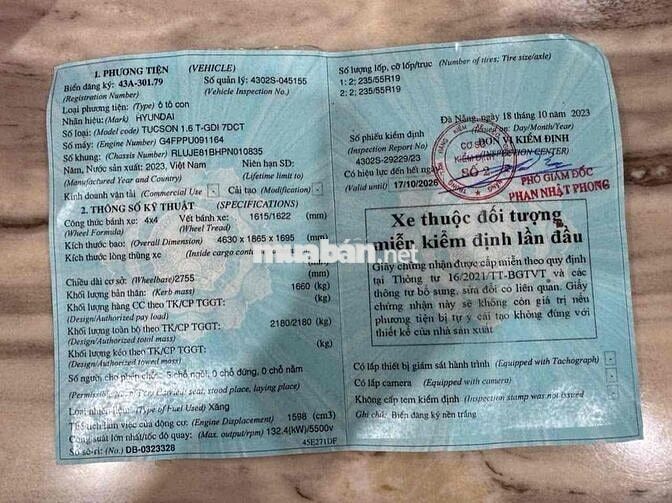 1. PHƯƠNG TIỆN (VEHICLE)
Biển đăng ký: 43A-301.79 Số quản lý: 4302S-045155
(Registration Number) (Vehicle Inspection No.)
Loại phương tiện: (Type) ô tô con
Nhãn hiệu: (Mark) HYUNDAI
Số loại: (Model code) TUCSON 1.6 T-GDI 7DCT
Số máy: (Engine Number) G4FPPU091164
Số khung: (Chassis Number) RLUJE81BHPN010835
Năm, Nước sản xuất: 2023, Việt Nam Niên hạn SD:
(Manufactured Year and Country) (Lifetime limit to)
Kinh doanh vận tải (Commercial Use) - Cải tạo (Modification) -
2. THÔNG SỐ KỸ THUẬT (SPECIFICATIONS)
Công thức bánh xe: 4x4 Vết bánh xe: 1615/1622 (mm)
(Wheel Formula) (Wheel Tread)
Kích thước bao: (Overall Dimension) 4630 x 1865 x 1695 (mm)
Kích thước lòng thùng xe (Inside cargo (mm)
Chiều dài cơ sở: (Wheelbase) 2755 (mm)
Khối lượng bản thân: (Kerb mass) 1660 (kg)
Khối lượng hàng CC theo TK/CP TGGT: (kg)
(Design/Authorized pay load)
Khối lượng toàn bộ theo TK/CP TGGT: 2180/2180 (kg)
(Design/Authorized total mass)
Khối lượng kéo theo TK/CP TGGT: (kg)
(Design/Authorized towed mass)
Số người cho phép chở: 5 chỗ ngồi, 0 chỗ đứng, 0 chỗ nằm
seat, stood place, laying place)
Loại nhiên liệu: (Type of Fuel Used) Xăng
Thể tích làm việc của động cơ: (Engine Displacement) 1598 (cm3)
Công suất lớn nhất/tốc độ quay: (Max. output/rpm) 132.4(kW)/5500v
Số sê-ri: (No.) DB-0323328 45E271DF
Số lượng lốp, cỡ lốp/trục (Number of tires; Tire size/axle)
1: 2; 235/55R19
2: 2; 235/55R19
Đà Nẵng, ngày 18 tháng 10 năm 2023
(Issued on: Day/Month/Year)
Số phiếu kiểm định ĐƠN VỊ KIỂM ĐỊNH
(Inspection Report No) (INSPECTION CENTER)
4302S-29229/23
Có hiệu lực đến hết ngày
(Valid until) 17/10/2026
SỐ 2
PHÓ GIÁM ĐỐC
PHAN NHẬT PHONG
Xe thuộc đối tượng
miễn kiểm định lần đầu
Giấy chứng nhận được cấp miễn theo quy định
tại Thông tư 16/2021/TT-BGTVT và các
thông tư bổ sung, sửa đổi có liên quan. Giấy
chứng nhận này sẽ không còn giá trị nếu
phương tiện bị tự ý cải tạo không đúng với
thiết kế của nhà sản xuất
Có lắp thiết bị giám sát hành trình (Equipped with Tachograph) -
Có lắp camera (Equipped with camera) -
Không cấp tem kiểm định (Inspection stamp was not issued
Ghi chú: Biển đăng ký nền trắng
muaban.net